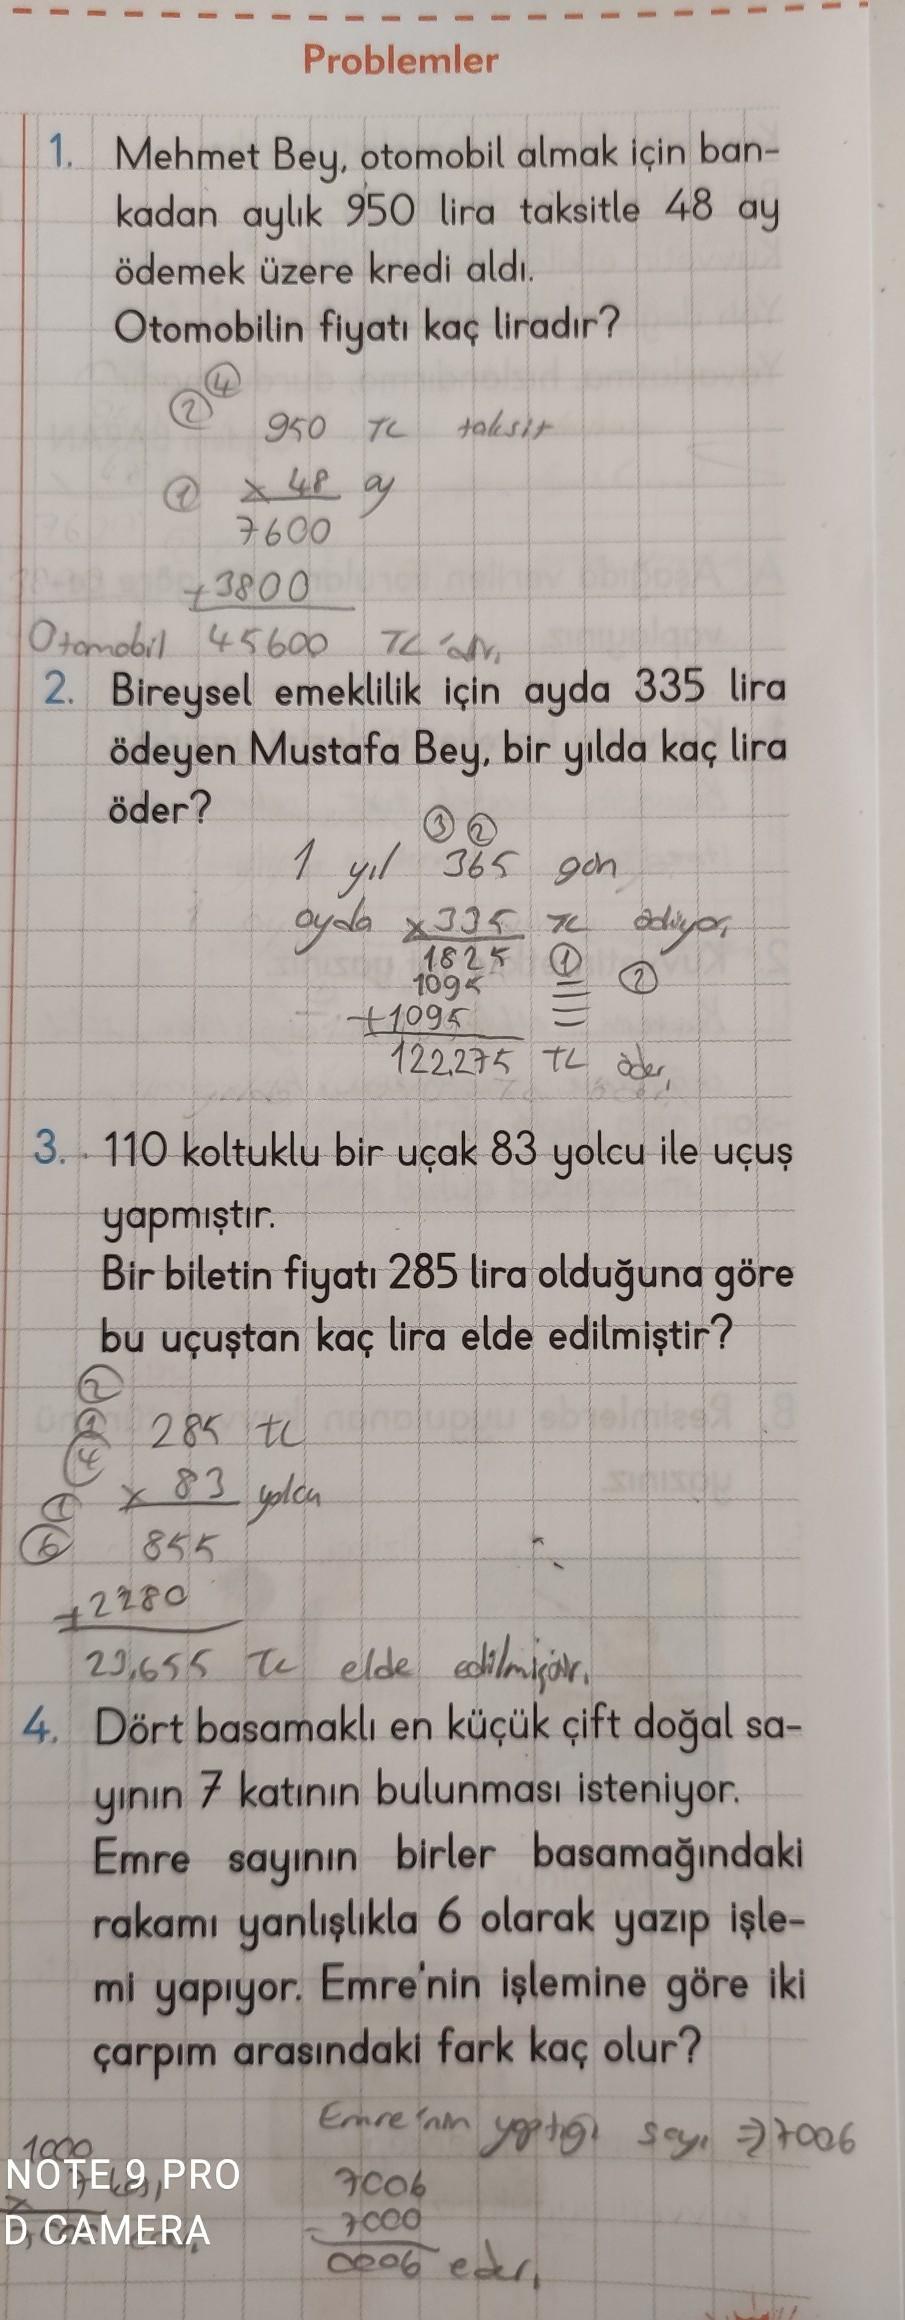 Problemler
1. Mehmet Bey, otomobil almak için ban-
kadan aylık 950 lira taksitle 48 ay
ödemek üzere kredi aldı.
Otomobilin fiyatı kaç liradır?
2 4
950 TL taksit
1 x 48 ay
7600
+3800
Otomobil 45600 TL'dir.
2. Bireysel emeklilik için ayda 335 lira
ödeyen Mustafa Bey, bir yılda kaç lira
öder?
3 2
1 yıl 365 gün
ayda x335 TL ödüyor,
1825 1
1095 2
+1095
122.275 TL öder,
3. 110 koltuklu bir uçak 83 yolcu ile uçuş
yapmıştır.
Bir biletin fiyatı 285 lira olduğuna göre
bu uçuştan kaç lira elde edilmiştir?
2
285 tL
4
x 83 yolcu
6 855
+2280
23,655 TL elde edilmiştir.
4. Dört basamaklı en küçük çift doğal sa-
yının 7 katının bulunması isteniyor.
Emre sayının birler basamağındaki
rakamı yanlışlıkla 6 olarak yazıp işle-
mi yapıyor. Emre'nin işlemine göre iki
çarpım arasındaki fark kaç olur?
Emre'nin yaptığı sayı ⇒ 7006
1000
7006
- 7000
0006 eder,
NOTE 9 PRO
D CAMERA